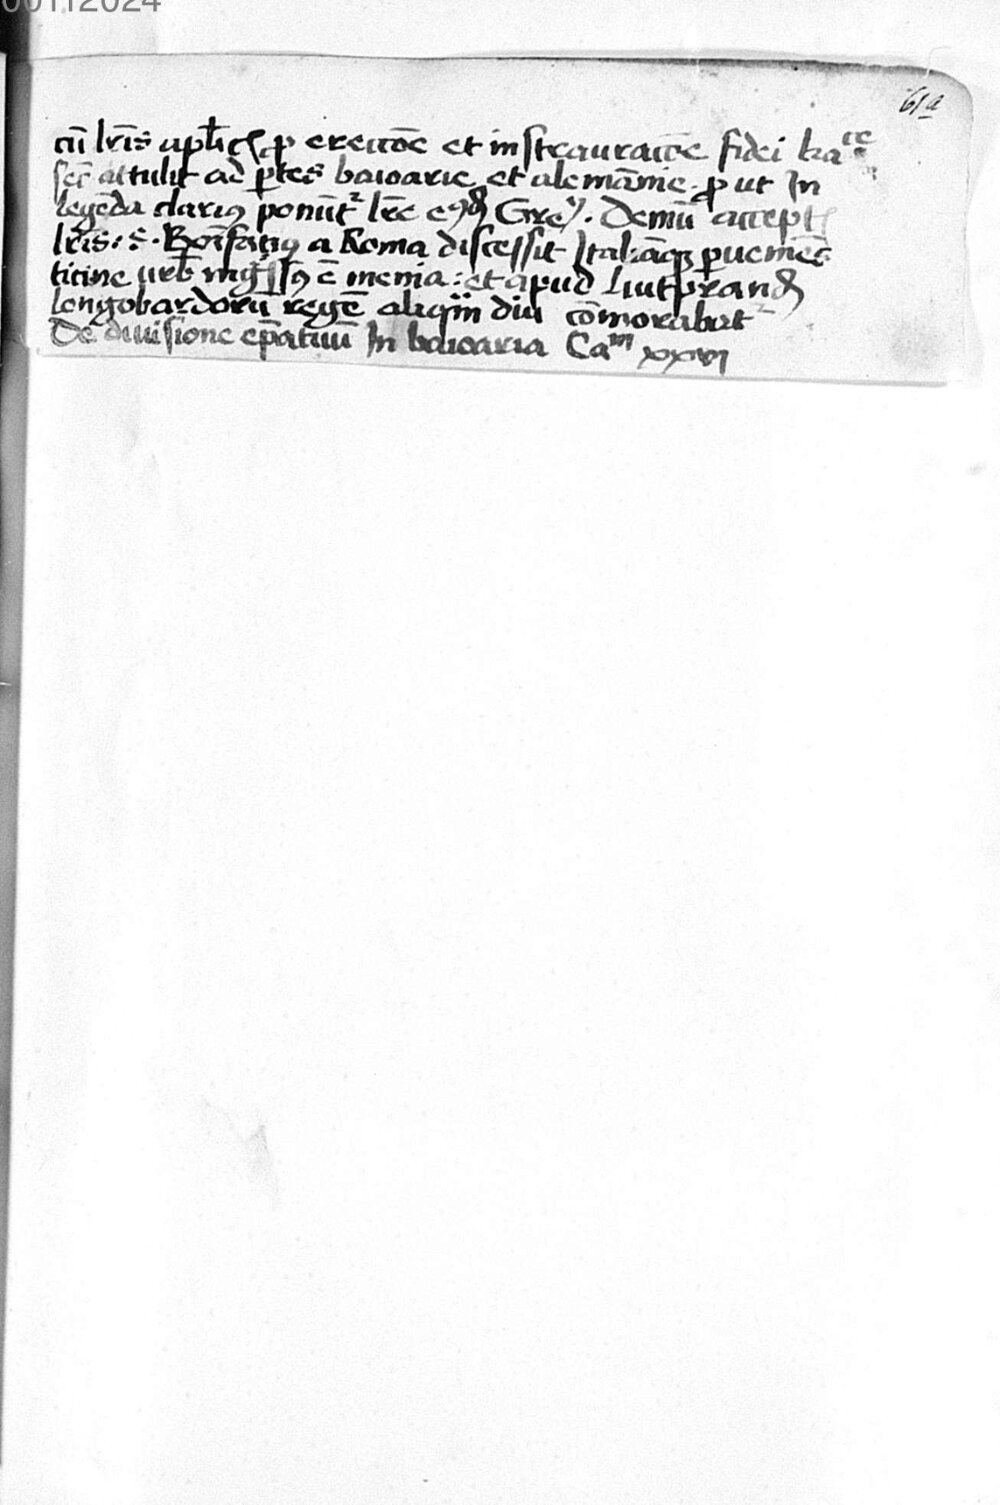 00112024
61a
cū lr̄is aplicꝭ ꝓ ereitōe et instauratiōe fidei ka^ce
sec̄ attulit ad ꝑtes baioarie et alemānie ꝓut In
legēda clariꝯ ponūt᷑ lr̄e eꝯdē Gre . Demū accept
lr̄is · S · Bonifatiꝯ a Roma discessit Italiāqꝫ ꝑueniēs
ticine urb̄ ingͥssꝯ ē menia : et apud Liutprand
longobardorū regē aliqͥn diu cōmorabat᷑
De diuisione ep̄atuū In baioaria Ca^m xxvi